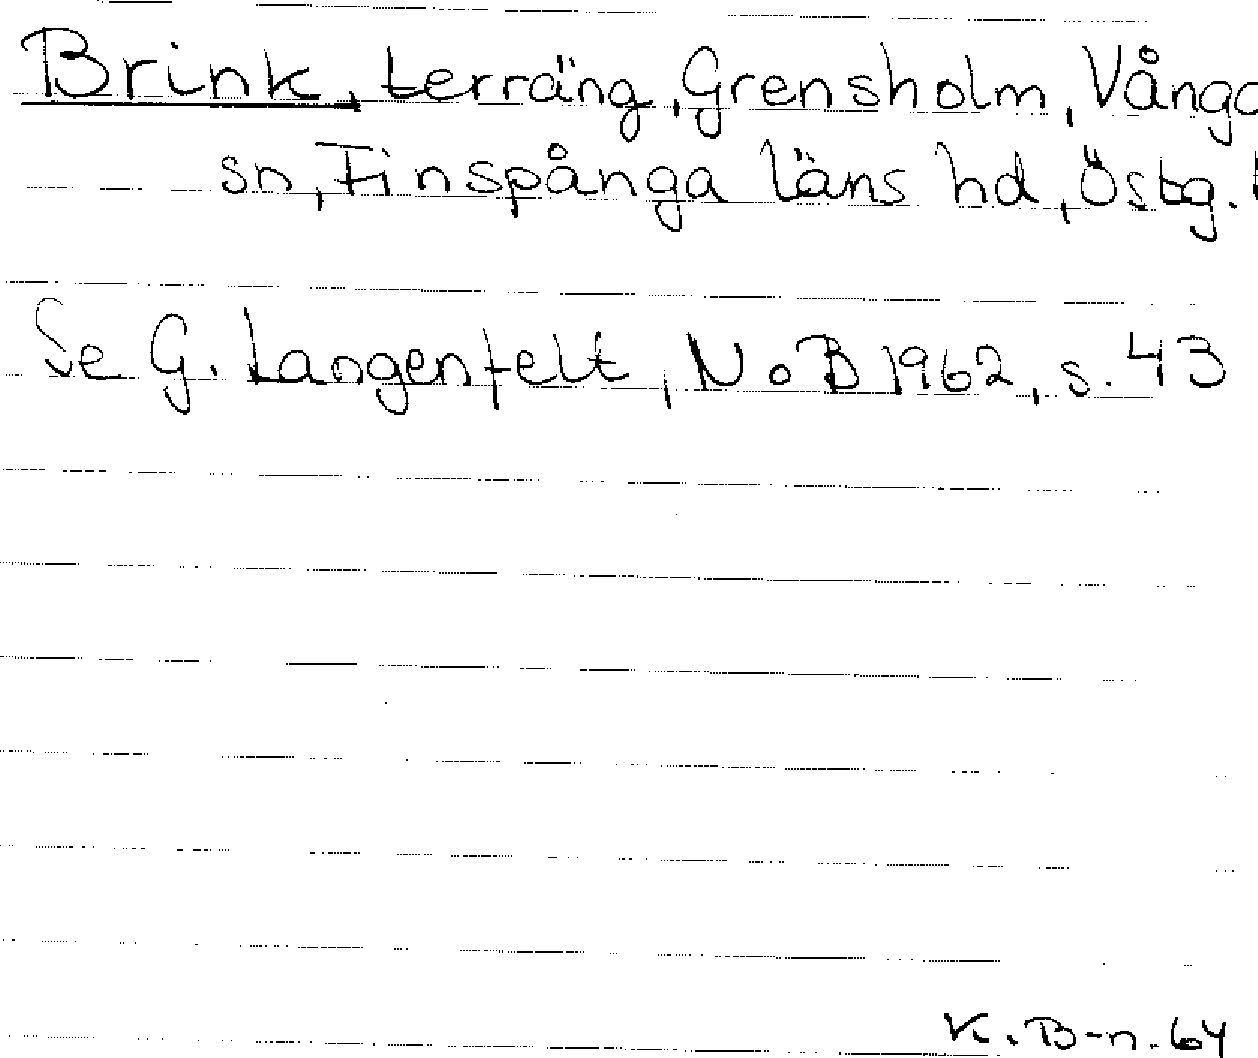 Brink, terräng, Grensholm, Vånga
sn, Finspånga läns hd, Östg.
Se G. Langenfelt, NoB 1962, s. 43
K. B-n. 64